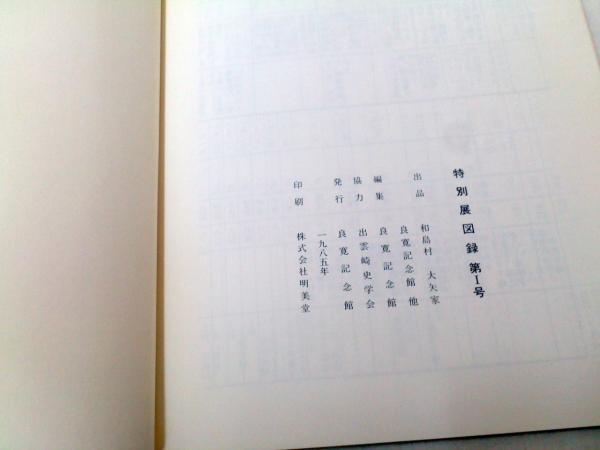 特別展図録 第I号
出品 和島村 大矢家
良寛記念館他
編集 良寛記念館
協力 出雲崎史学会
発行 良寛記念館
一九八五年
印刷 株式会社明美堂